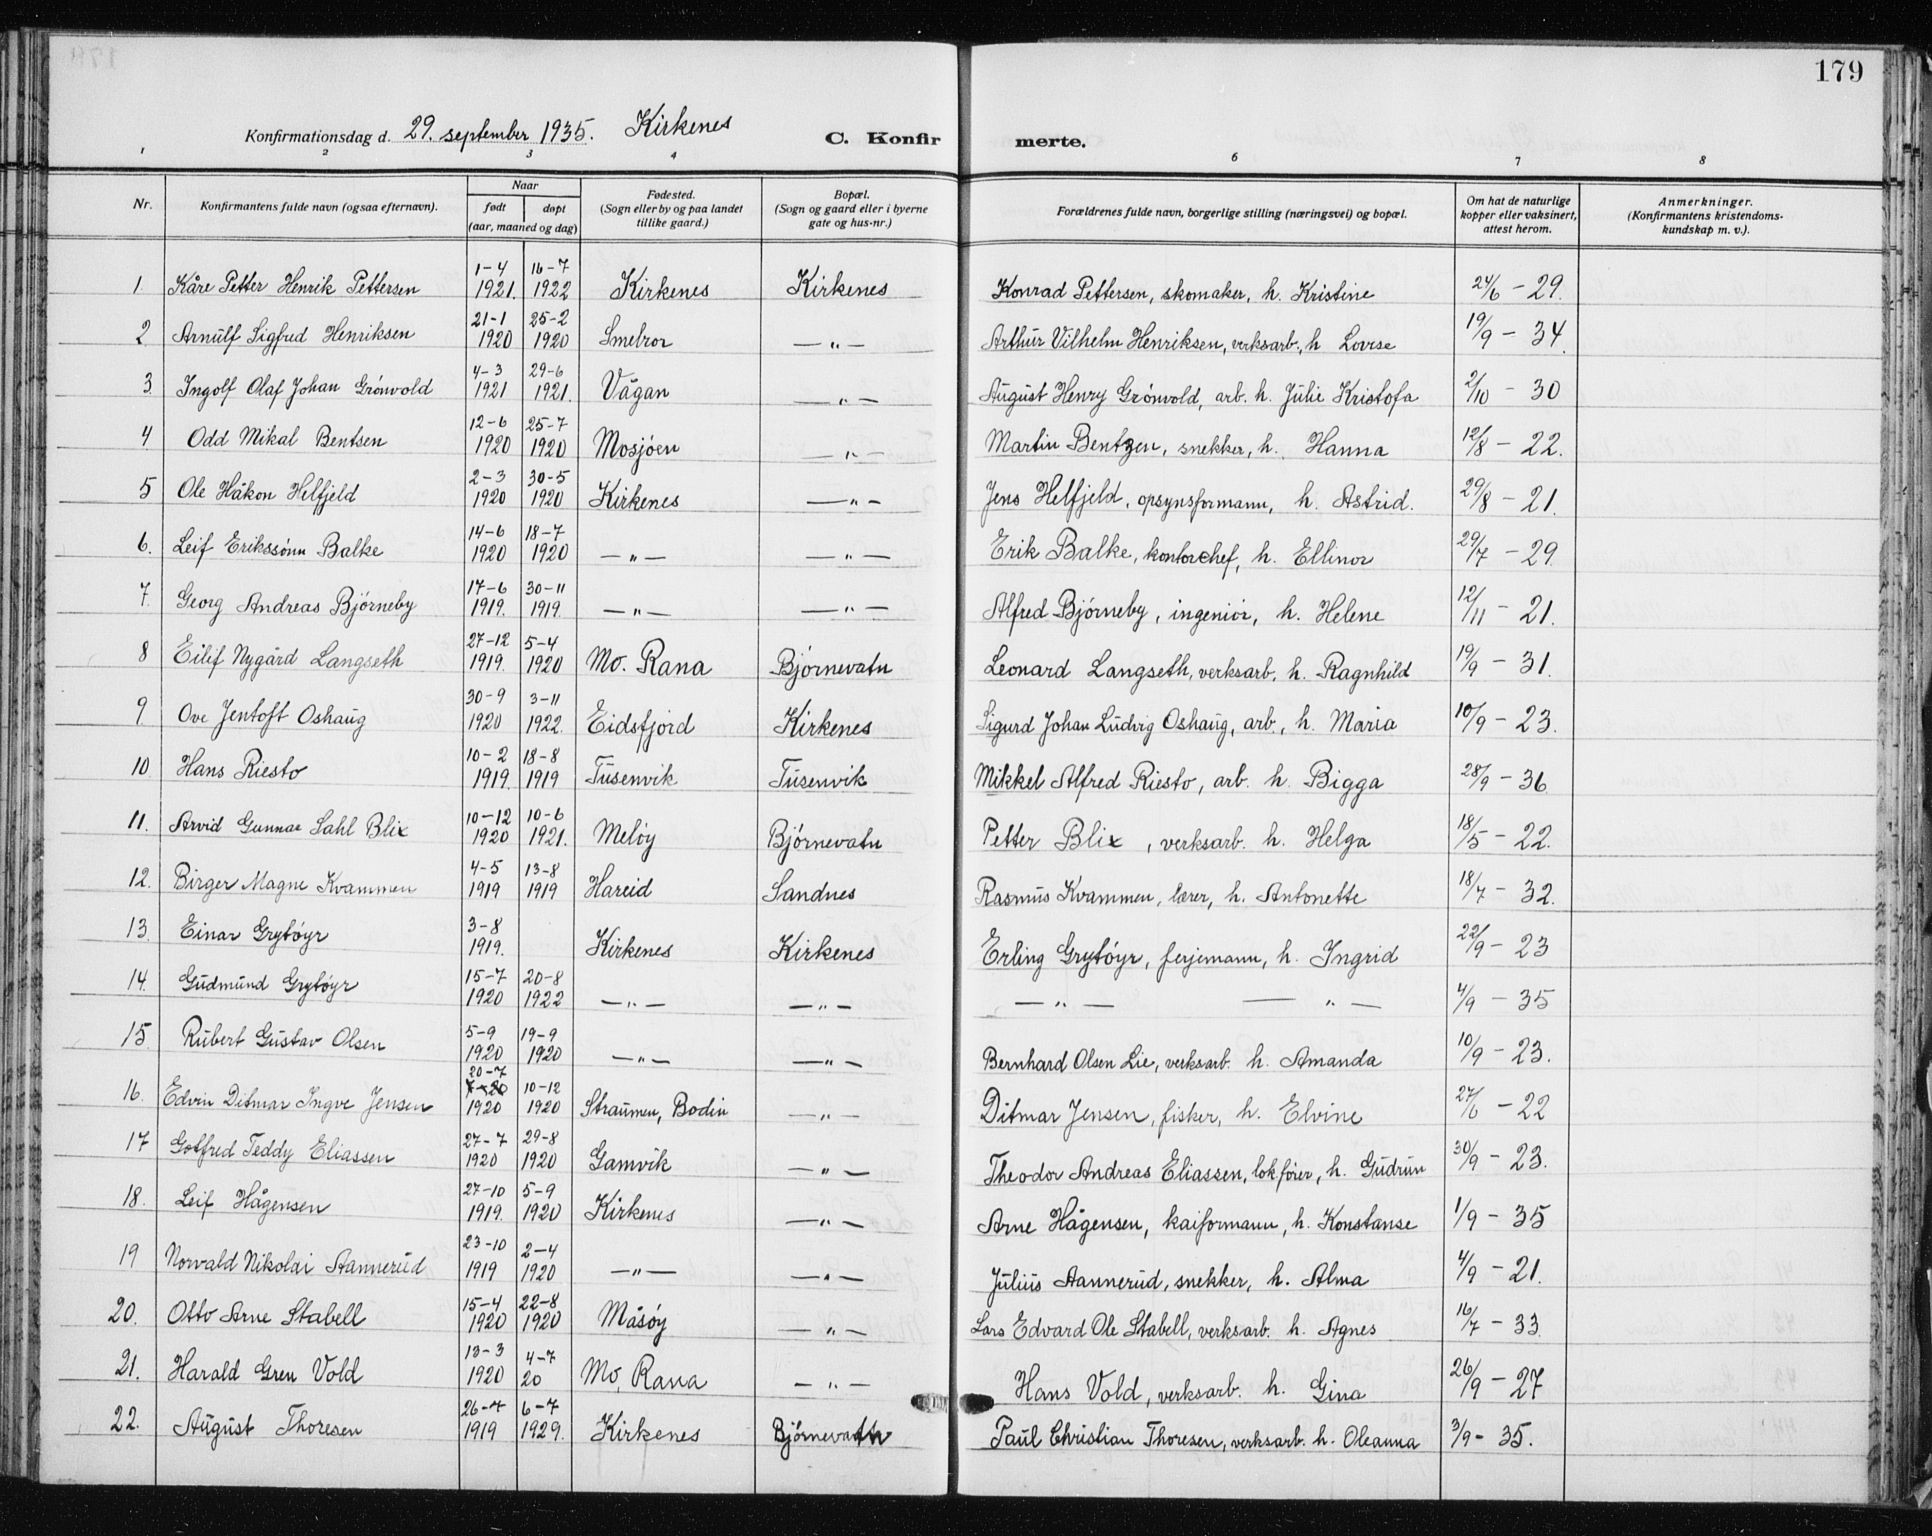 179
Konfirmationsdag d. 29. september 1935. Kirkenes C. Konfirmerte.
1 2 3 4 6 7 8
Nr. Konfirmantens fulde navn (ogsaa efternavn). Naar født døpt (aar, maaned og dag) Fødested. (Sogn eller by og paa landet tillike gaard.) Bopæl. (Sogn og gaard eller i byerne gate og hus-nr.) Forældrenes fulde navn, borgerlige stilling (næringsvei) og bopæl. Om hat de naturlige kopper eller vaksinert, attest herom. Anmerkninger. (Konfirmantens kristendoms-kundskap m. v.).
1. Kåre Petter Henrik Pettersen 1-4 1921. 16-7 1922 Kirkenes Kirkenes Konrad Pettersen, skomaker, h. Kristine 24/6 - 29.
2 Arnulf Sigfred Henriksen 21-1 1920 25-2 1920 Smelror —„— Arthur Vilhelm Henriksen, verksarb., h Lovise 19/9 - 34.
3. Ingolf Olaf Johan Grönvold 4-3 1921 29-6 1921. Vågan —„— August Henry Grönvold, arb. h. Julie Kristofa 2/10 - 30
4 Odd Mikal Bentsen 12-6 1920 25-7 1920 Mosjöen —„— Martin Bentzen, snekker, h. Hanna 12/8 - 22.
5 Ole Håkon Helfjeld 2-3 1920 30-5 1920 Kirkenes —„— Jens Helfjeld, opsynsformann, h. Astrid. 29/8 - 21.
6. Leif Erikssönn Balke 14-6 1920 18-7 1920 —„— —„— Erik Balke, kontorchef, h. Ellinor 29/7 - 29.
7. Georg Andreas Björneby 17-6 1919. 30-11 1919. —„— —„— Alfred Björneby, ingeniör, h. Helene 12/11 - 21.
8 Eilif Nygård Langseth 27-12 1919. 5-4 1920 Mo. Rana Björnevatn Leonard Langseth, verksarb, h. Ragnhild 19/9 - 31.
9 Ove Jentoft Oshaug 30-9 1920 3-11 1922. Eidsfjord Kirkenes Sigurd Johan Ludvig Oshaug, arb., h. Maria 10/9 - 23.
10 Hans Riesto 10-2 1919. 18-8 1919 Tusenvik Tusenvik Mikkel Alfred Riesto, arb. h. Bigga 28/9 - 36
11. Arvid Gunnar Dahl Blix 10-12 1920 10-6 1921. Melöy Björnevatn Petter Blix, verksarb. h. Helga 18/5 - 22.
12. Birger Magne Kvammen 4-5 1919 13-8 1919 Hareid Sandnes Rasmus Kvammen, lærer, h. Antonette 18/7 - 32.
13. Einar Grytöyr 3-8 1919. Kirkenes Kirkenes Erling Grytöyr, ferjemann, h. Ingrid 22/9 - 23
14. Gudmund Grytöyr 15-7 1920 20-8 1922 —„— —„— —„— —„— 4/9 - 35
15 Rubert Gustav Olsen 5-9 1920 19-9 1920 —„— —„— Bernhard Olsen Lie, verksarb. h. Amanda 10/9 - 23.
16. Edvin Ditmar Ingve Jensen 20-7 1920 10-12 1920 Straumen, Bodin —„— Ditmar Jensen, fisker, h. Elvine 27/6 - 22
17 Gotfred Teddy Eliassen 27-7 1920 29-8 1920 Gamvik —„— Theodor Andreas Eliassen, lokförer, h. Gudrun 30/9 - 23.
18. Leif Hågensen 27-10 1919. 5-9 1920 Kirkenes —„— Arne Hågensen, kaiformann, h. Konstanse 1/9 - 35
19 Norvald Nikolai Aannerud 23-10 1919 2-4 1920 —„— —„— Julius Aannerud, snekker, h. Alma 4/9 - 21.
20. Otto Arne Stabell 15-4 1920 22-8 1920 Måsöy —„— Lars Edvard Ole Stabell, verksarb. h. Agnes 16/7 - 33.
21. Harald Gren Vold 13-3 1920 4-7 20 Mo, Rana —„— Hans Vold, verksarb. h. Gina 26/9 - 27
22. August Thoresen 26-7 1919 6-7 1929. Kirkenes Björnevatn Paul Christian Thoresen, verksarb. h. Oleanna 3/9 - 35.